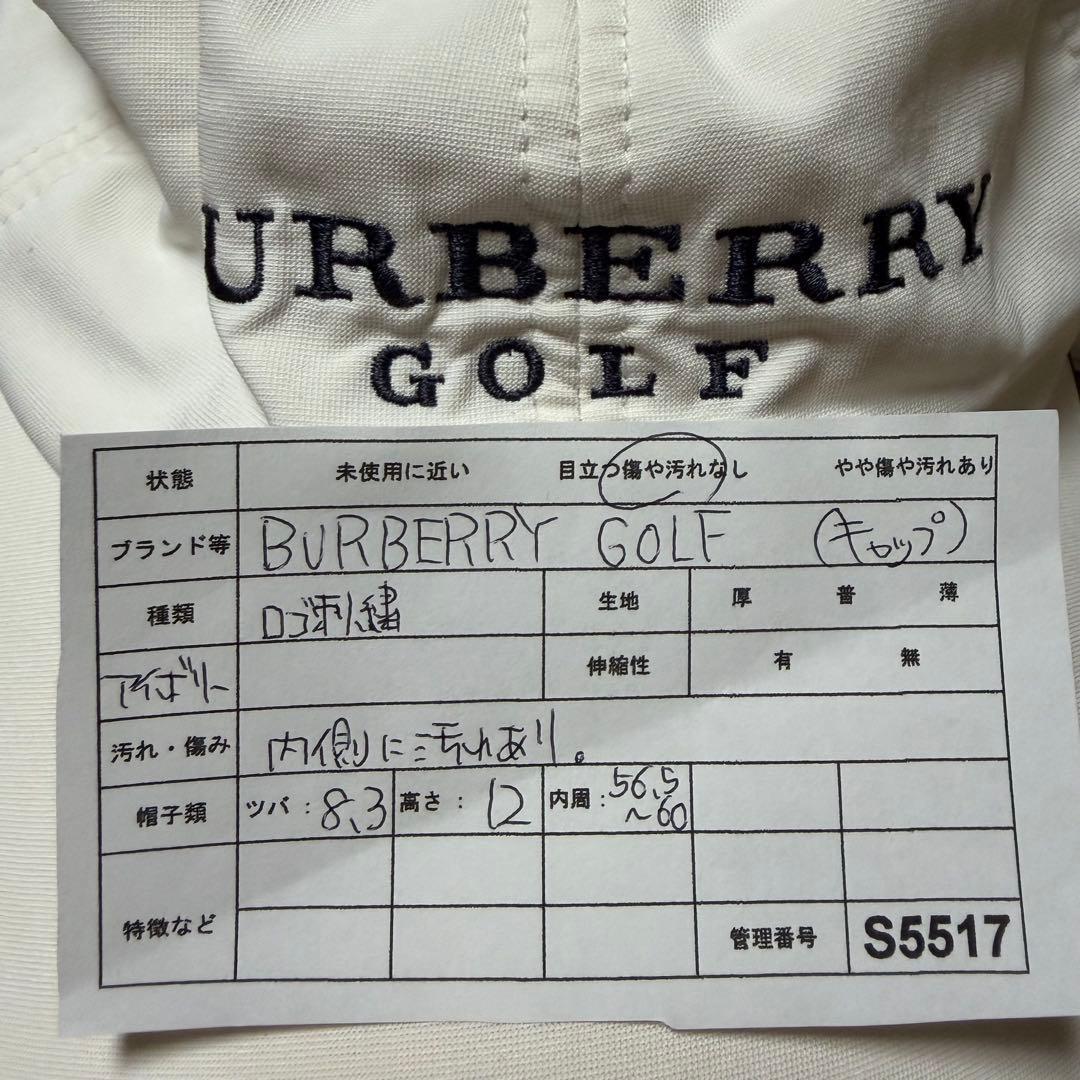 URBERRY
GOLF
状態 未使用に近い 目立つ傷や汚れなし やや傷や汚れあり
ブランド等 BURBERRY GOLF (キャップ)
種類 ロゴ刺繍 生地 厚 普 薄
アイボリー 伸縮性 有 無
汚れ・傷み 内側に汚れあり。
帽子類 ツバ: 8.3 高さ: 12 内周: 56.5
~60
特徴など
管理番号 S5517